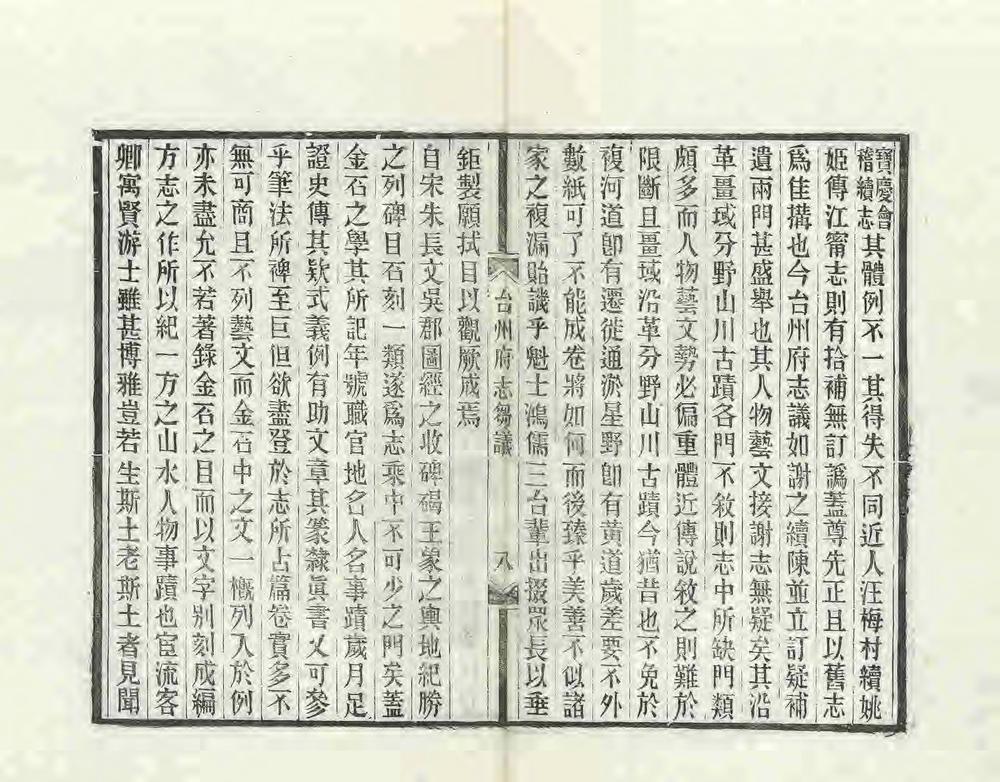 寶慶會
稽續志其體例不一其得失不同近人汪梅村續姚
姬傳江甯志則有拾補無訂譌蓋尊先正且以舊志
爲佳搆也今台州府志議如謝之續陳並立訂疑補
遺兩門甚盛舉也其人物藝文接謝志無疑矣其沿
革畺域分野山川古蹟各門不敘則志中所缺門類
頗多而人物藝文勢必偏重體近傳說敘之則難於
限斷且畺域沿革分野山川古蹟今猶昔也不免於
複河道卽有遷徙通淤星野卽有黃道歲差要不外
數紙可了不能成卷將如何而後臻乎美善不似諸
家之複漏貽譏乎魁士鴻儒三台輩出掇眾長以垂
台州府志芻議
八
鉅製願拭目以觀厥成焉
自宋朱長文吳郡圖經之收碑碣王象之輿地紀勝
之列碑目石刻一類遂爲志乘中不可少之門矣蓋
金石之學其所記年號職官地名人名事蹟歲月足
證史傳其欵式義例有助文章其篆隸眞書又可參
乎筆法所裨至巨但欲盡登於志所占篇卷實多不
無可商且不列藝文而金石中之文一概列入於例
亦未盡允不若著錄金石之目而以文字別刻成編
方志之作所以紀一方之山水人物事蹟也宦流客
卿寓賢游士雖甚博雅豈若生斯土老斯土者見聞